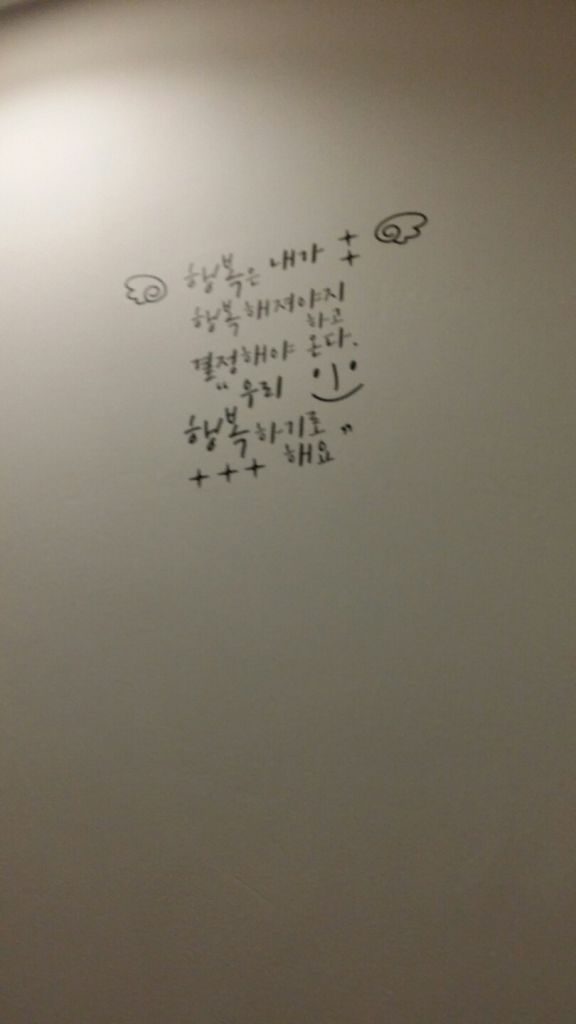 행복은 내가
행복해져야지
하고
결정해야 온다.
"우리
행복하기로
해요"